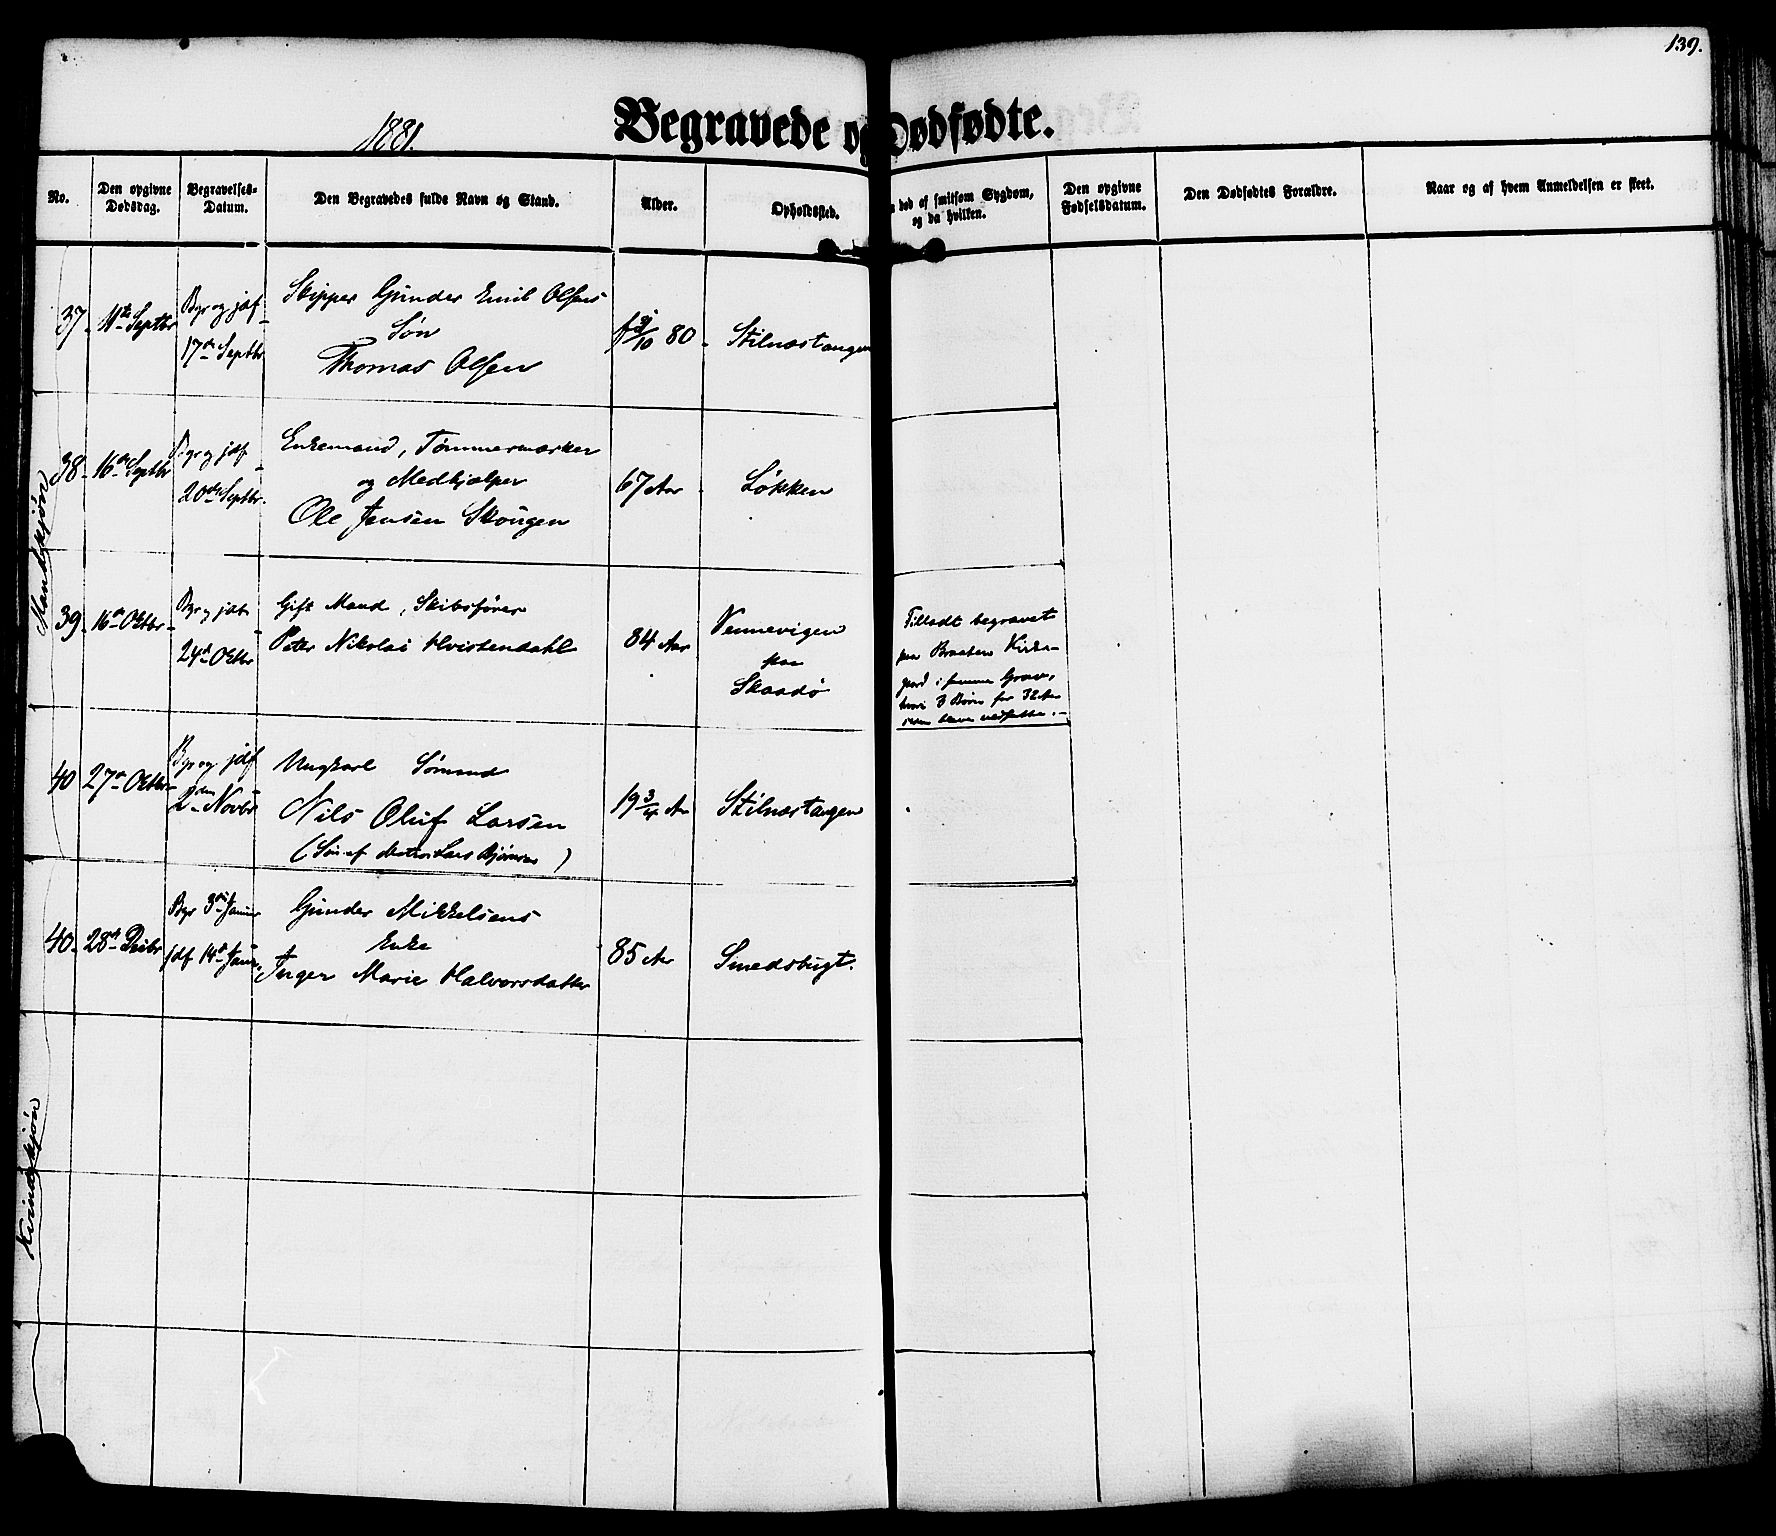 139.
1881.
Begravede og Dødfødte.
No.
Den opgivne Dødsdag.
Begravelses-Datum.
Den Begravedes fulde Navn og Stand.
Alder.
Opholdssted.
død af smitsom Sygdom, og da hvilken.
Den opgivne Fødselsdatum.
Den Dødfødtes Forældre.
Naar og af hvem Anmeldelsen er skeet.
Mandkjøn
37. 11te Septbr
Bgr og jdf
17de Septbr
Skipper Gunder Emil Olsens
Søn
Thomas Olsen
10 80.
Stilnæstangen
38. 16de Septbr
Bgr og jdf
20de Septbr.
Enkemand, Tømmermærker
og Medhjælper
Ole Jensen Skougen
67 Aar.
Løkken
39. 16de Octbr
24de Octbr
Gift Mand, Skibsfører
Peter Nikolai Hvistendahl
84 Aar
Vennevigen
paa
Skaadø
Tilladt begravet
paa Braatens Kirke-
gaard i samme Grav,
hvori 3 Børn for 32 Aar
siden bleve nedsatte.
40 27de Octbr
Bgr og jdf
2den Novbr
Ungkarl Sømand
Nils Oluf Larsen
(Søn af Matros Lars Bjørnsen)
19 3/4 Aar
Stilnæstangen
Kvindekjøn
40. 28de Decbr
Bgr 3die Januar
jdf 14de Januar
Gunder Mikkelsens
Enke
Inger Marie Halvorsdatter
85 Aar
Smedsbugt.